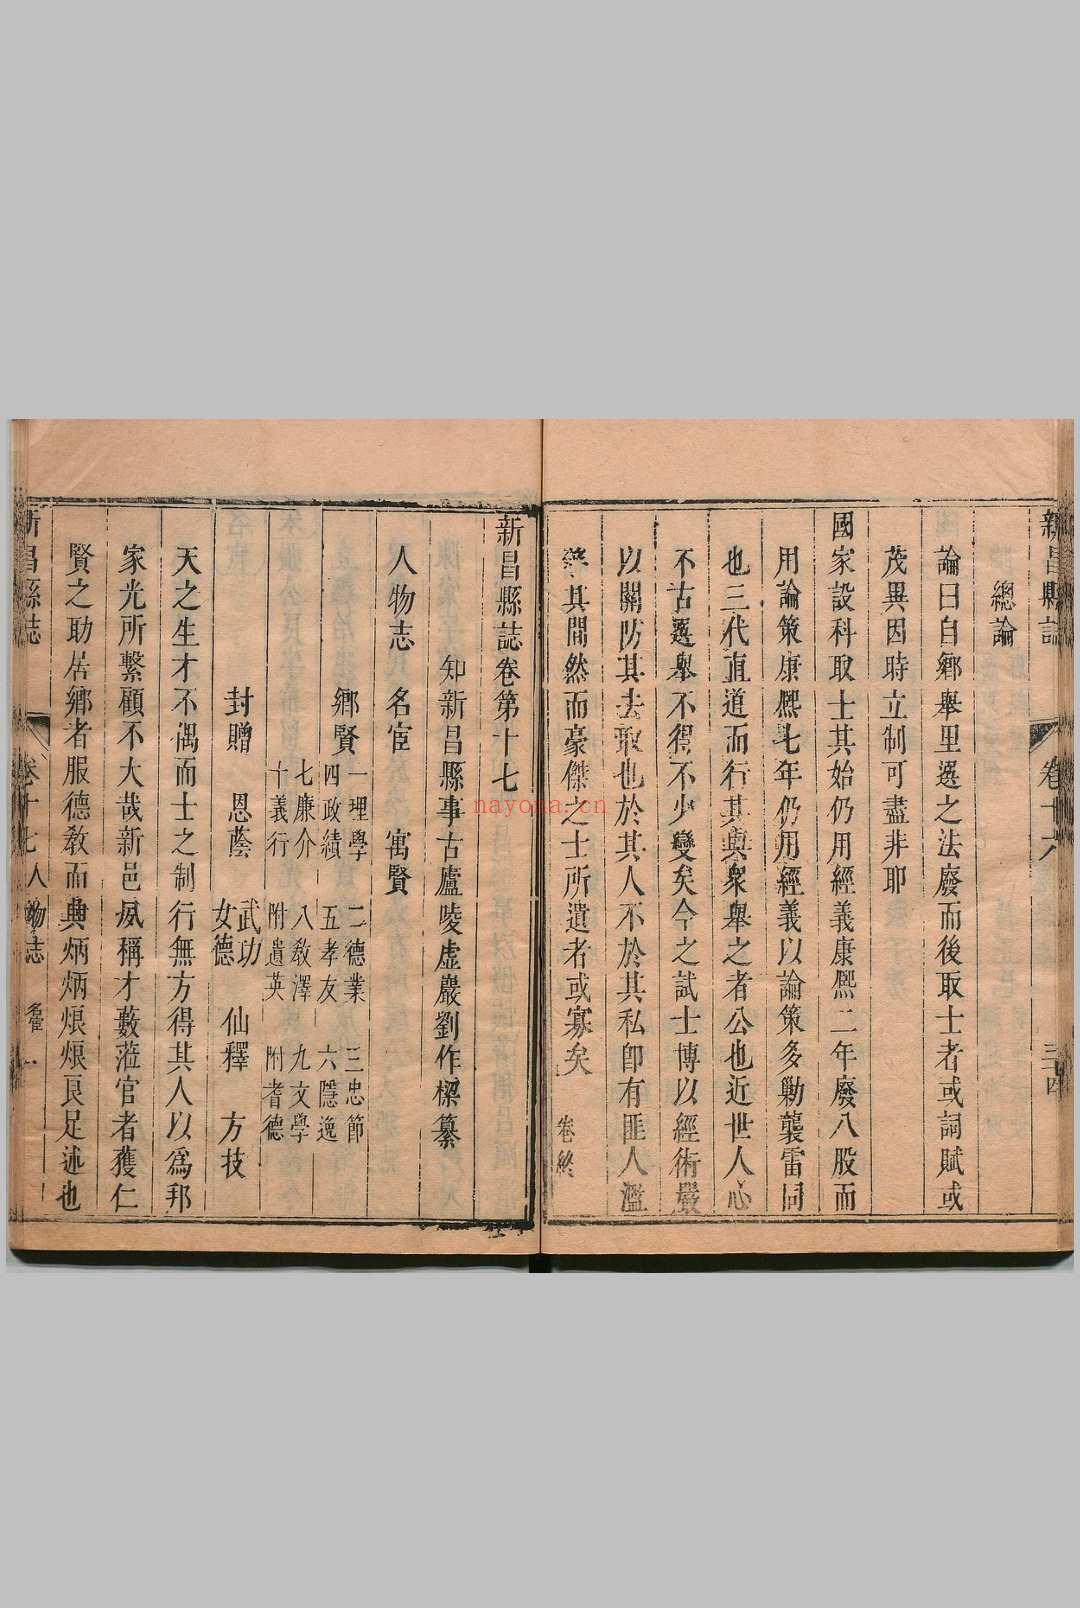 新昌縣誌 卷十六 三十四
總論
論曰自鄉舉里選之法廢而後取士者或詞賦或
茂異因時立制可盡非耶
國家設科取士其始仍用經義康熙二年廢八股而
用論策康熙七年仍用經義以論策多勦襲雷同
也三代直道而行其與衆舉之者公也近世人心
不古選舉不得不少變矣今之試士博以經術嚴
以關防其去取也於其人不於其私卽有匪人濫
其間然而豪傑之士所遺者或寡矣 卷終
新昌縣誌卷第十七
知新昌縣事古廬陵虛巖劉作樑纂
人物志 名宦 寓賢
鄉賢 一理學 二德業 三忠節
四政績 五孝友 六隱逸
七廉介 八敎澤 九文學
十義行 附遺英 附耆德
封贈 恩蔭 武功 女德 仙釋 方技
天之生才不偶而士之制行無方得其人以爲邦
家光所繫顧不大哉新邑夙稱才藪蒞官者獲仁
賢之助居鄉者服德敎而典炳炳烺烺良足述也
新昌縣誌 卷十七 人物志 一
nayona.cn